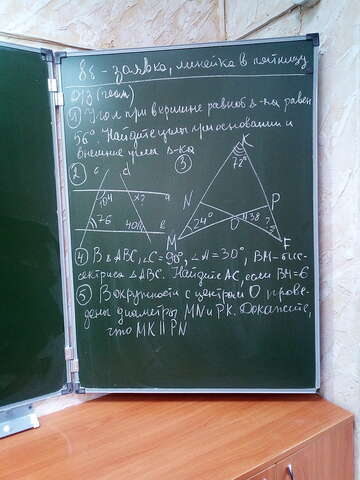 8б - заявка, линейка в пятницу
D/з (геом)
① Угол при вершине равноб Δ-ка равен
56°. Найдите углы при основании и
внешние углы Δ-ка
② c d ③ K
72°
104 x? a
N P
76 40 b
24° O 38 ?
M F
④ В ΔABC, ∠C=90°, ∠A=30°, BM-бис-
сектриса ΔABC. Найдите AC, если BM=6
⑤ В окружности с центром O прове-
дены диаметры MN и PK. Докажите,
что MK || PN